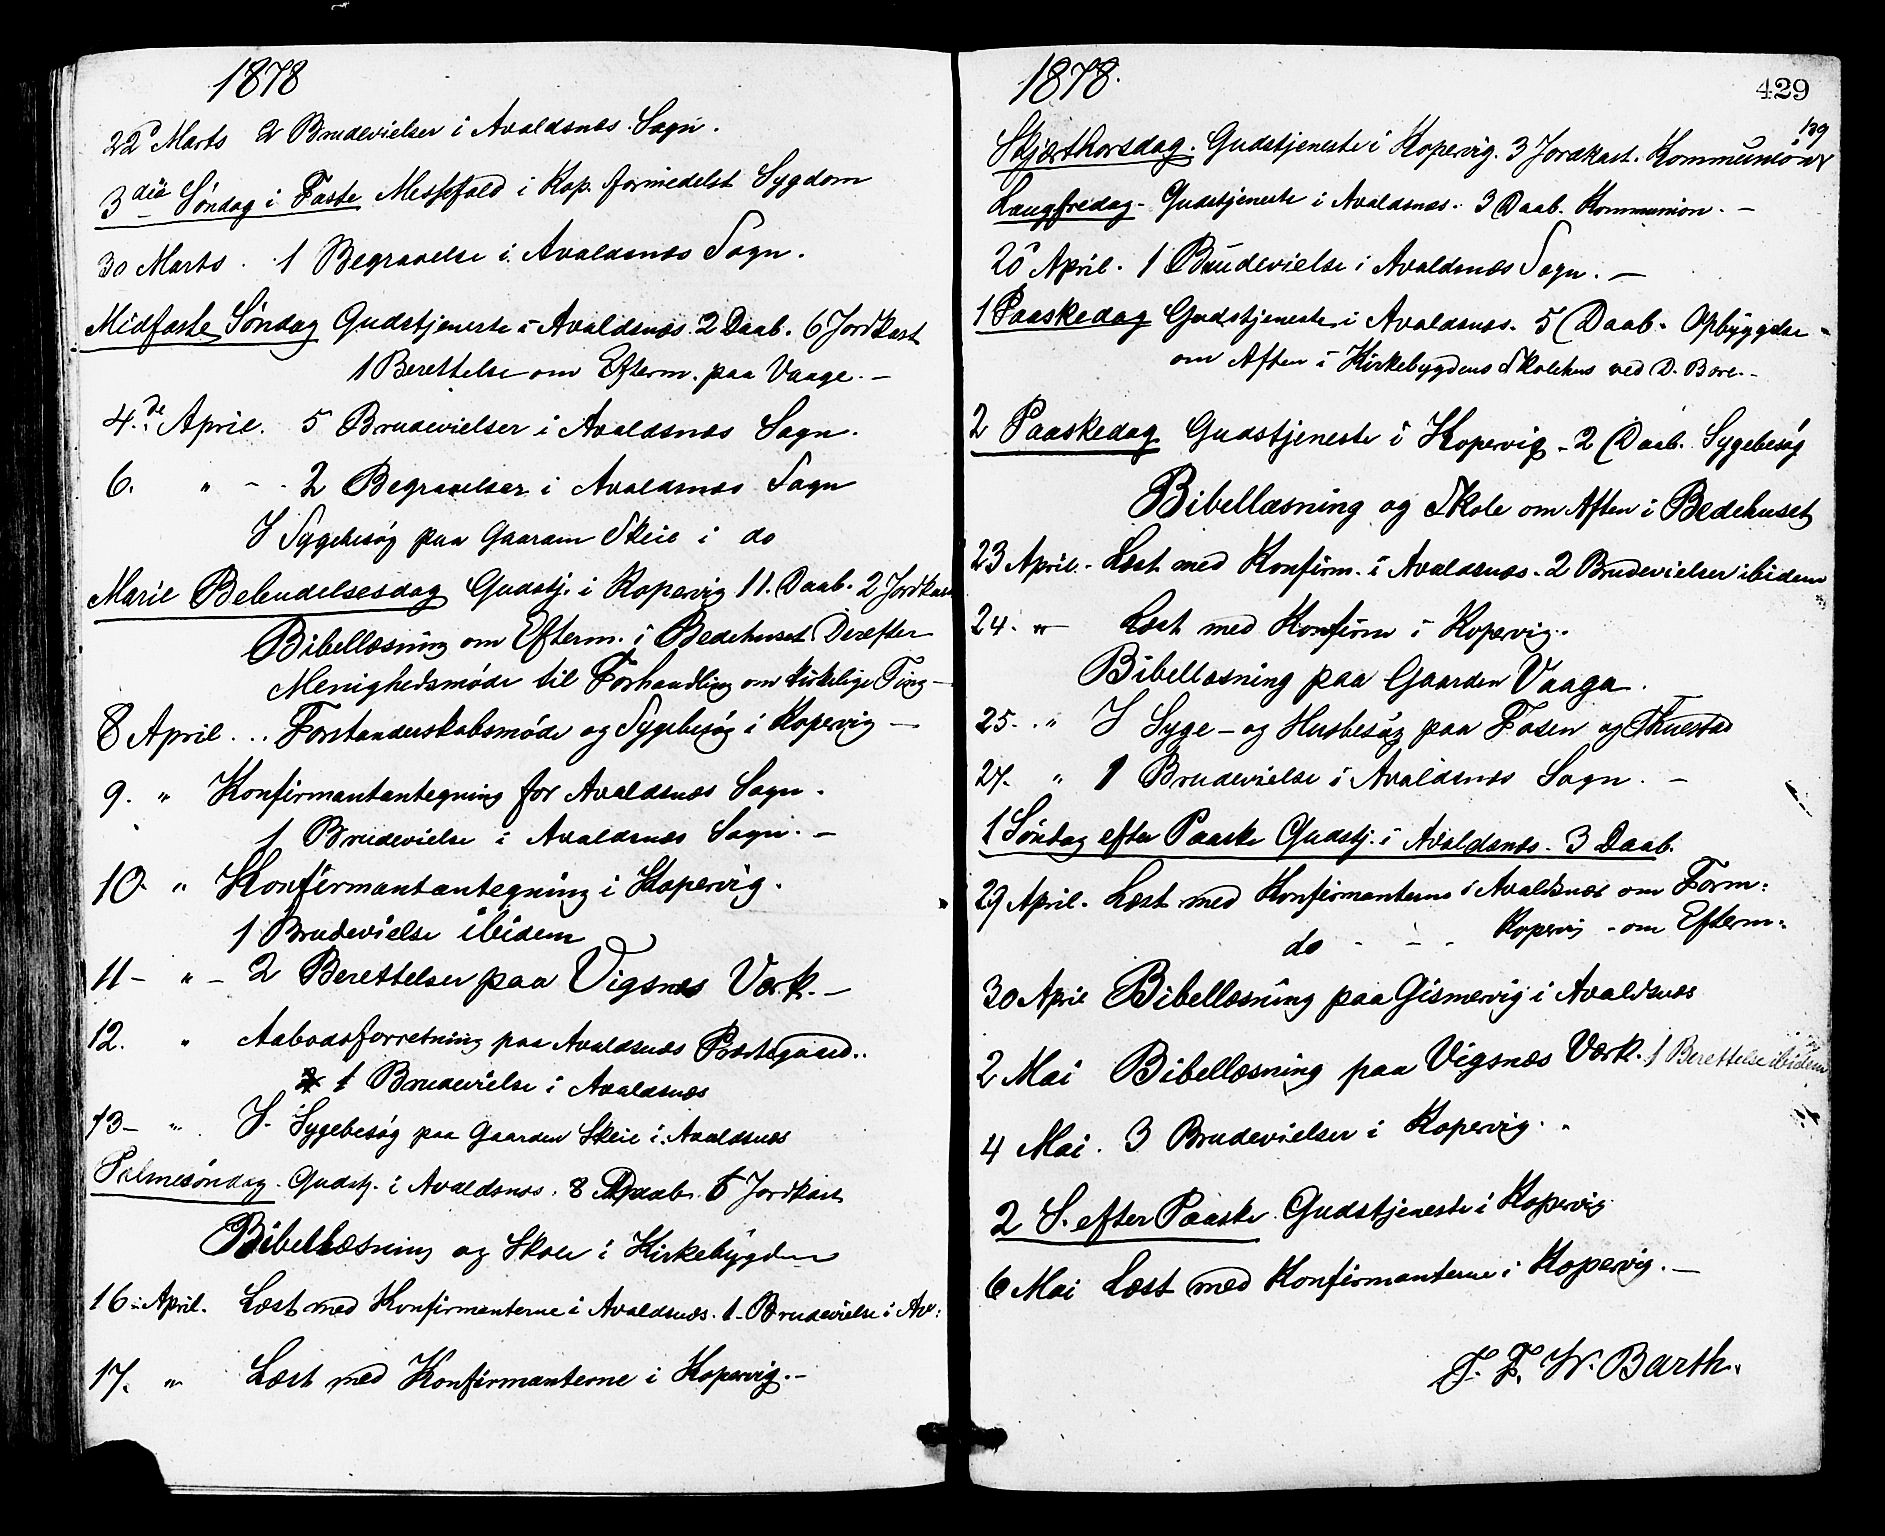 1878
22 Marts 2 Brudevielser i Avaldsnæs Sogn.
3die Søndag i Faste Messefald i Kop. formedelst Sygdom
30 Marts. 1 Begravelse i Avaldsnæs Sogn.
Midfaste Søndag Gudstjeneste i Avaldsnæs. 2 Daab. 6 Jordkast
1 Berettelse om Efterm. paa Vaage. –
4de April. 5 Brudevielser i Avaldsnæs Sogn.
6. " - - 2 Begravelser i Avaldsnæs Sogn
I Sygebesøg paa Gaarden Skeie i do
Marie Bebudelsesdag Gudstj. i Kopervig 11. Daab. 2 Jordkast
Bibellæsning om Efterm. i Bedehuset Derefter
Menighedsmøde til Forhandling om kirkelige Ting –
8 April ... Forstanderskabsmøde og Sygebesøg i Kopervig –
9. " Konfirmantantegning for Avaldsnæs Sogn.
1 Brudevielse i Avaldsnæs Sogn. –
10. " Konfirmantantegning i Kopervig.
1 Brudevielse ibidem
11 – " – 2 Berettelser paa Vigsnæs Værk. –
12. " Aabodsforretning paa Avaldsnæs Præstegaard..
1 Brudevielse i Avaldsnæs
13 – " I. Sygebesøg paa Gaarden Skeie i Avaldsnæs
Palmesøndag. Gudstj. i Avaldsnæs. 8 Daab. 6 Jordkast
Bibellæsning og Skole i Kirkebygden
16 April. Læst med Konfirmanterne i Avaldsnæs. 1 Brudevielse i Av:
17. " Læst med Konfirmanterne i Kopervig. –
1878.
429
Skjærthorsdag. Gudstjeneste i Kopervig. 3 Jordkast. Kommunion
Langfredag – Gudstjeneste i Avaldsnæs. 3 Daab. Kommunion. –
20 April. 1 Brudevielse i Avaldsnæs Sogn. –
1 Paaskedag Gudstjeneste i Avaldsnæs. 5 Daab. Opbyggelse
om Aften i Kirkebygdens Skolehus ved D. Bore. –
2 Paaskedag Gudstjeneste i Kopervig – 2 Daab. Sygebesøg
Bibellæsning og Skole om Aften i Bedehuset
23 April – Læst med Konfirm. i Avaldsnæs – 2 Brudevielser ibidem
24. " Læst med Konfirm i Kopervig.
Bibellæsning paa Gaarden Vaaga.
25. " I Syge- og Husbesøg paa Fosen og
27. " 1 Brudevielse i Avaldsnæs Sogn. –
1 Søndag efter Paaske Gudstj. i Avaldsnæs. 3 Daab.
29 April. Læst med Konfirmanterne i Avaldsnæs om Form:
do - - - Kopervig - om Efterm:
30 April Bibellæsning paa Gismervig i Avaldsnæs
2 Mai Bibellæsning paa Vigsnæs Værk. 1 Berettelse ibidem
4 Mai. 3 Brudevielser i Kopervig.
2 S. efter Paaske Gudstjeneste i Kopervig
6 Mai Læst med Konfirmanterne i Kopervig. –
W. Barth.